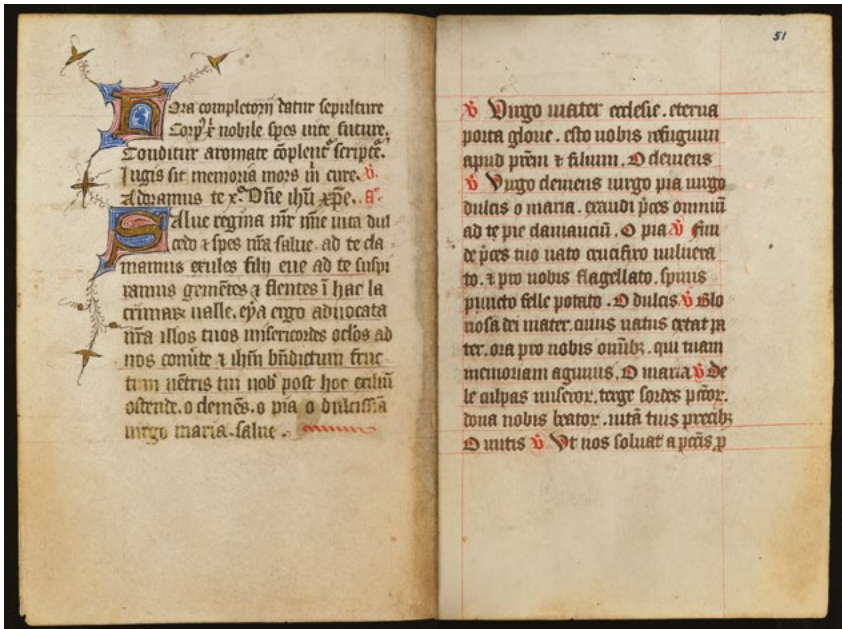 Hora completorij datur sepulture
Corpꝰ xͥ nobile spes uite future.
Conditur aromate cōplent᷑ scripte͛.
Iugis sit memoria mors in cure. v̄.
Adoramus te xͤ. Dn̄e ihū xp̄e. aͣ.
Salue regina mr̄ mīe uita dul
cedo ⁊ spes nr̄a salue. ad te cla-
mamus exules filij eue ad te suspi
ramus gemētes ⁊ flentes ī hac la
crimaꝝ ualle. eya ergo aduocata
nr̄a illos tuos misericordes oclōs ad
nos conūte ⁊ ihm̄ bn̄dictum fruc
tum uētris tui nob̄ post hoc exiliū
ostende. o clemēs. o pia o dulcissīa
uirgo maria. salue.
51
v̄ Uirgo mater ecclesie. eterna
porta glorie. esto nobis refugium
apud pr̄em ⁊ filium. O clemens
v̄ Uirgo clemens uirgo pia uirgo
dulcis o maria. exaudi p̄ces omniū
ad te pie clamanciū. O pia v̄ Fun
de p̄ces tuo nato crucifixo uulnera
to. ⁊ pro nobis flagellato. spinis
puncto felle potato. O dulcis v̄ Glo
riosa dei mater. cuius natus extat pa
ter. ora pro nobis omībꝫ. qui tuam
memoriam agimus. O maria v̄ De
le culpas miseroꝝ. terge sordes pc̄toꝝ.
dona nobis beatoꝝ. uitā tuis precibꝫ
O mitis v̄ Vt nos soluat a pcc̄is. p